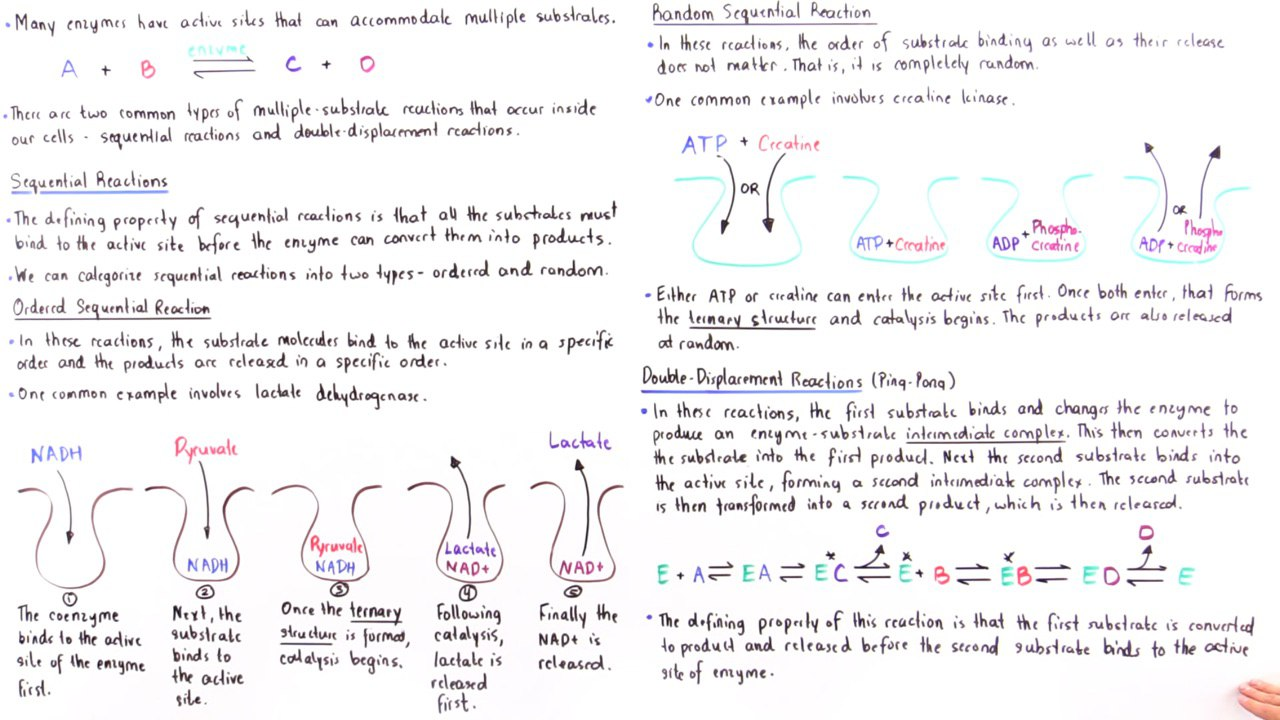 • Many enzymes have active sites that can accommodate multiple substrates.
enzyme
A + B ⇌ C + D
• There are two common types of multiple-substrate reactions that occur inside
our cells - sequential reactions and double-displacement reactions.
Sequential Reactions
• The defining property of sequential reactions is that all the substrates must
bind to the active site before the enzyme can convert them into products.
• We can categorize sequential reactions into two types - ordered and random.
Ordered Sequential Reaction
• In these reactions, the substrate molecules bind to the active site in a specific
order and the products are released in a specific order.
• One common example involves lactate dehydrogenase.
NADH
Pyruvate
NADH
Pyruvate
NADH
Lactate
NAD+
Lactate
NAD+
①
The coenzyme
binds to the active
site of the enzyme
first.
②
Next, the
substrate
binds to
the active
site.
③
Once the ternary
structure is formed,
catalysis begins.
④
Following
catalysis,
lactate is
released
first.
⑤
Finally the
NAD+ is
released.
Random Sequential Reaction
• In these reactions, the order of substrate binding as well as their release
does not matter. That is, it is completely random.
• One common example involves creatine kinase.
ATP + Creatine
OR
ATP + Creatine
ADP + Phospho-
creatine
OR
ADP + Phospho
creatine
• Either ATP or creatine can enter the active site first. Once both enter, that forms
the ternary structure and catalysis begins. The products are also released
at random.
Double-Displacement Reactions (Ping-Pong)
• In these reactions, the first substrate binds and changes the enzyme to
produce an enzyme-substrate intermediate complex. This then converts the
the substrate into the first product. Next the second substrate binds into
the active site, forming a second intermediate complex. The second substrate
is then transformed into a second product, which is then released.
C
D
E + A ⇌ EA ⇌ E*C ⇌ E* + B ⇌ E*B ⇌ ED ⇌ E
• The defining property of this reaction is that the first substrate is converted
to product and released before the second substrate binds to the active
site of enzyme.